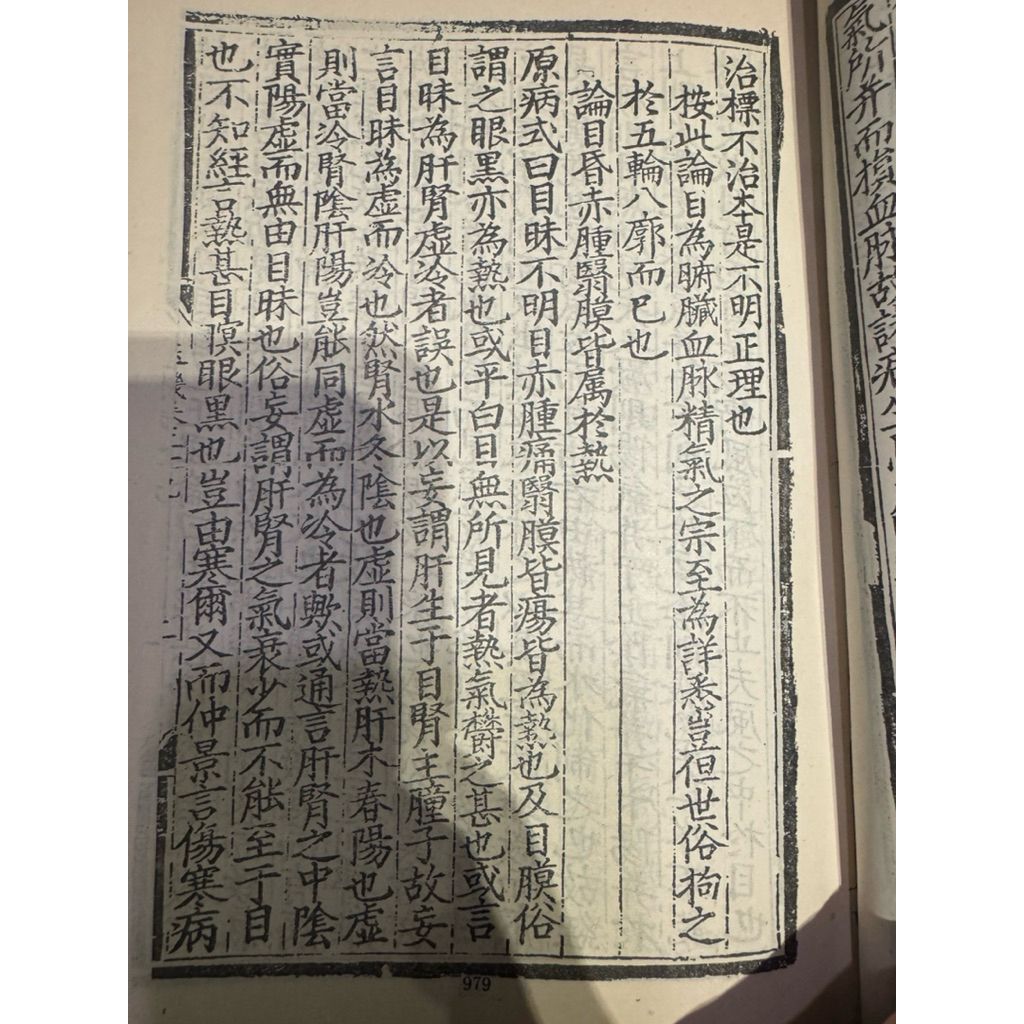 治標不治本是不明正理也
按此論目為腑臟血脉精氣之宗至為詳悉豈但世俗拘之
於五輪八廓而已也
論目昏赤腫翳膜皆属於熱
原病式曰目眛不明目赤腫痛翳膜皆瘍皆為熱也及目膜俗
謂之眼黑亦為熱也或平白目無所見者熱氣欝之甚也或言
目眛為肝腎虛冷者誤也是以妄謂肝生于目腎主瞳子故妄
言目眛為虛而冷也然腎水冬陰也虛則當熱肝木春陽也虛
則當冷腎陰肝陽豈能同虛而為冷者歟或通言肝腎之中陰
實陽虛而無由目眛也俗妄謂肝腎之氣衰少而不能至于目
也不知經言熱甚目瞑眼黑也豈由寒爾又而仲景言傷寒病
979
氣所并而損血脉故諸病